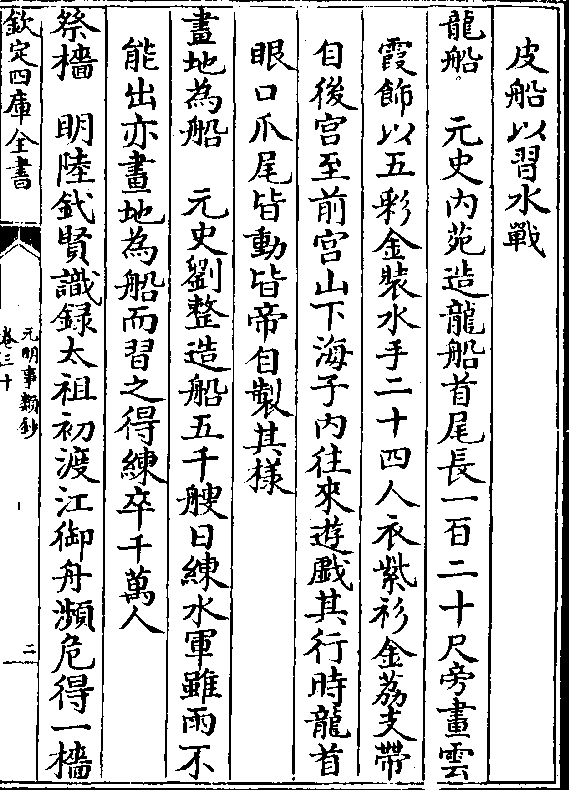 皮船以習水戰
龍船　元史内苑造龍船首尾長一百二十尺旁畫雲
霞飾以五彩金裝水手二十四人衣紫衫金荔支帶
自後宫至前宫山下海子内往來遊戲其行時龍首
眼口爪尾皆動皆帝自製其樣
畫地為船　元史劉整造船五千艘日練水軍雖雨不
能出亦畫地為船而習之得練卒千萬人
祭檣　明陸釴賢識録太祖初渡江御舟瀕危得一檣
欽定四庫全書
元明事類鈔
卷三十
二